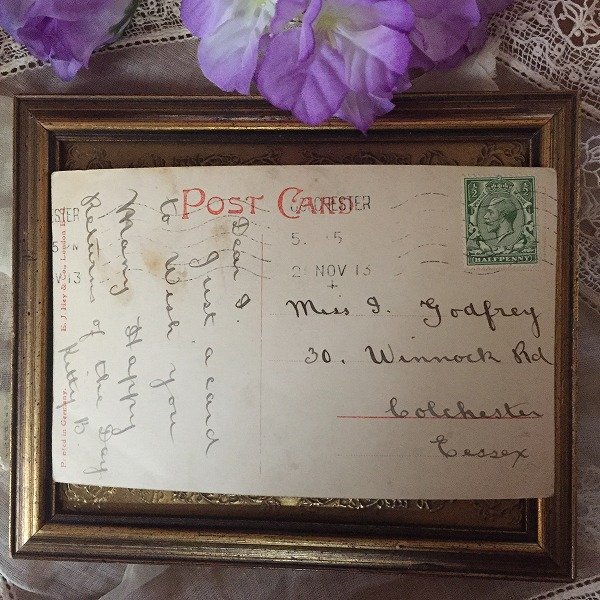 POST CARD
COLCHESTER
5. 5
2 NOV 13
HALFPENNY
Miss I. Godfrey
30. Winnock Rd
Colchester
Essex
Dear I.
Just a card
to wish you
Many Happy
Returns of the Day
Kitty B.
STER
5
V 13
E. J. Hey & Co., London
Printed in Germany.